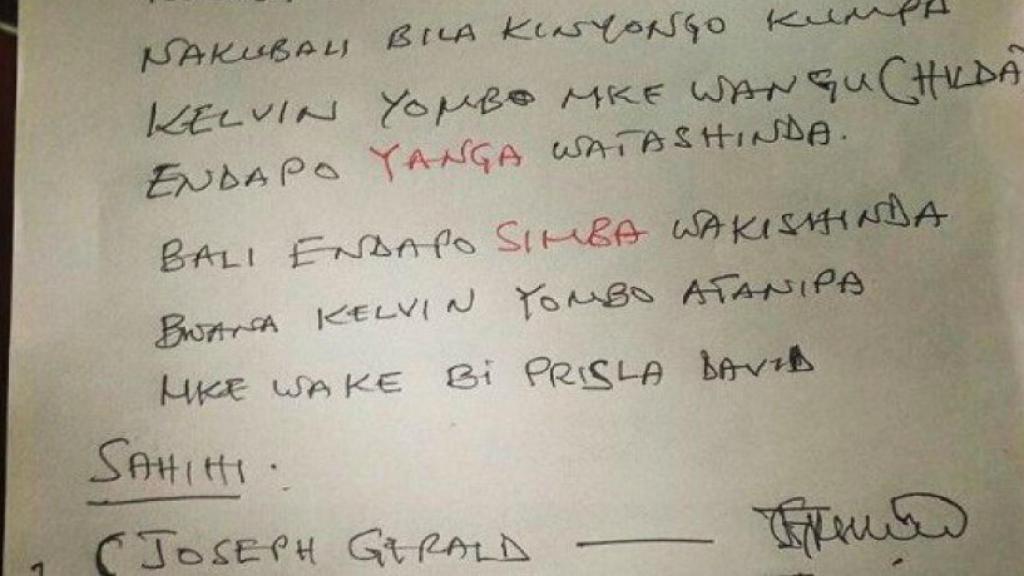 NAKUBALI BILA KINYONGO KUMPA
KELVIN YOMBO MKE WANGU (HILDA)
ENDAPO YANGA WATASHINDA.
BALI ENDAPO SIMBA WAKISHINDA
BWANA KELVIN YOMBO ATANIPA
MKE WAKE Bi PRISLA DAVID
SAHIHI.
( JOSEPH GERALD